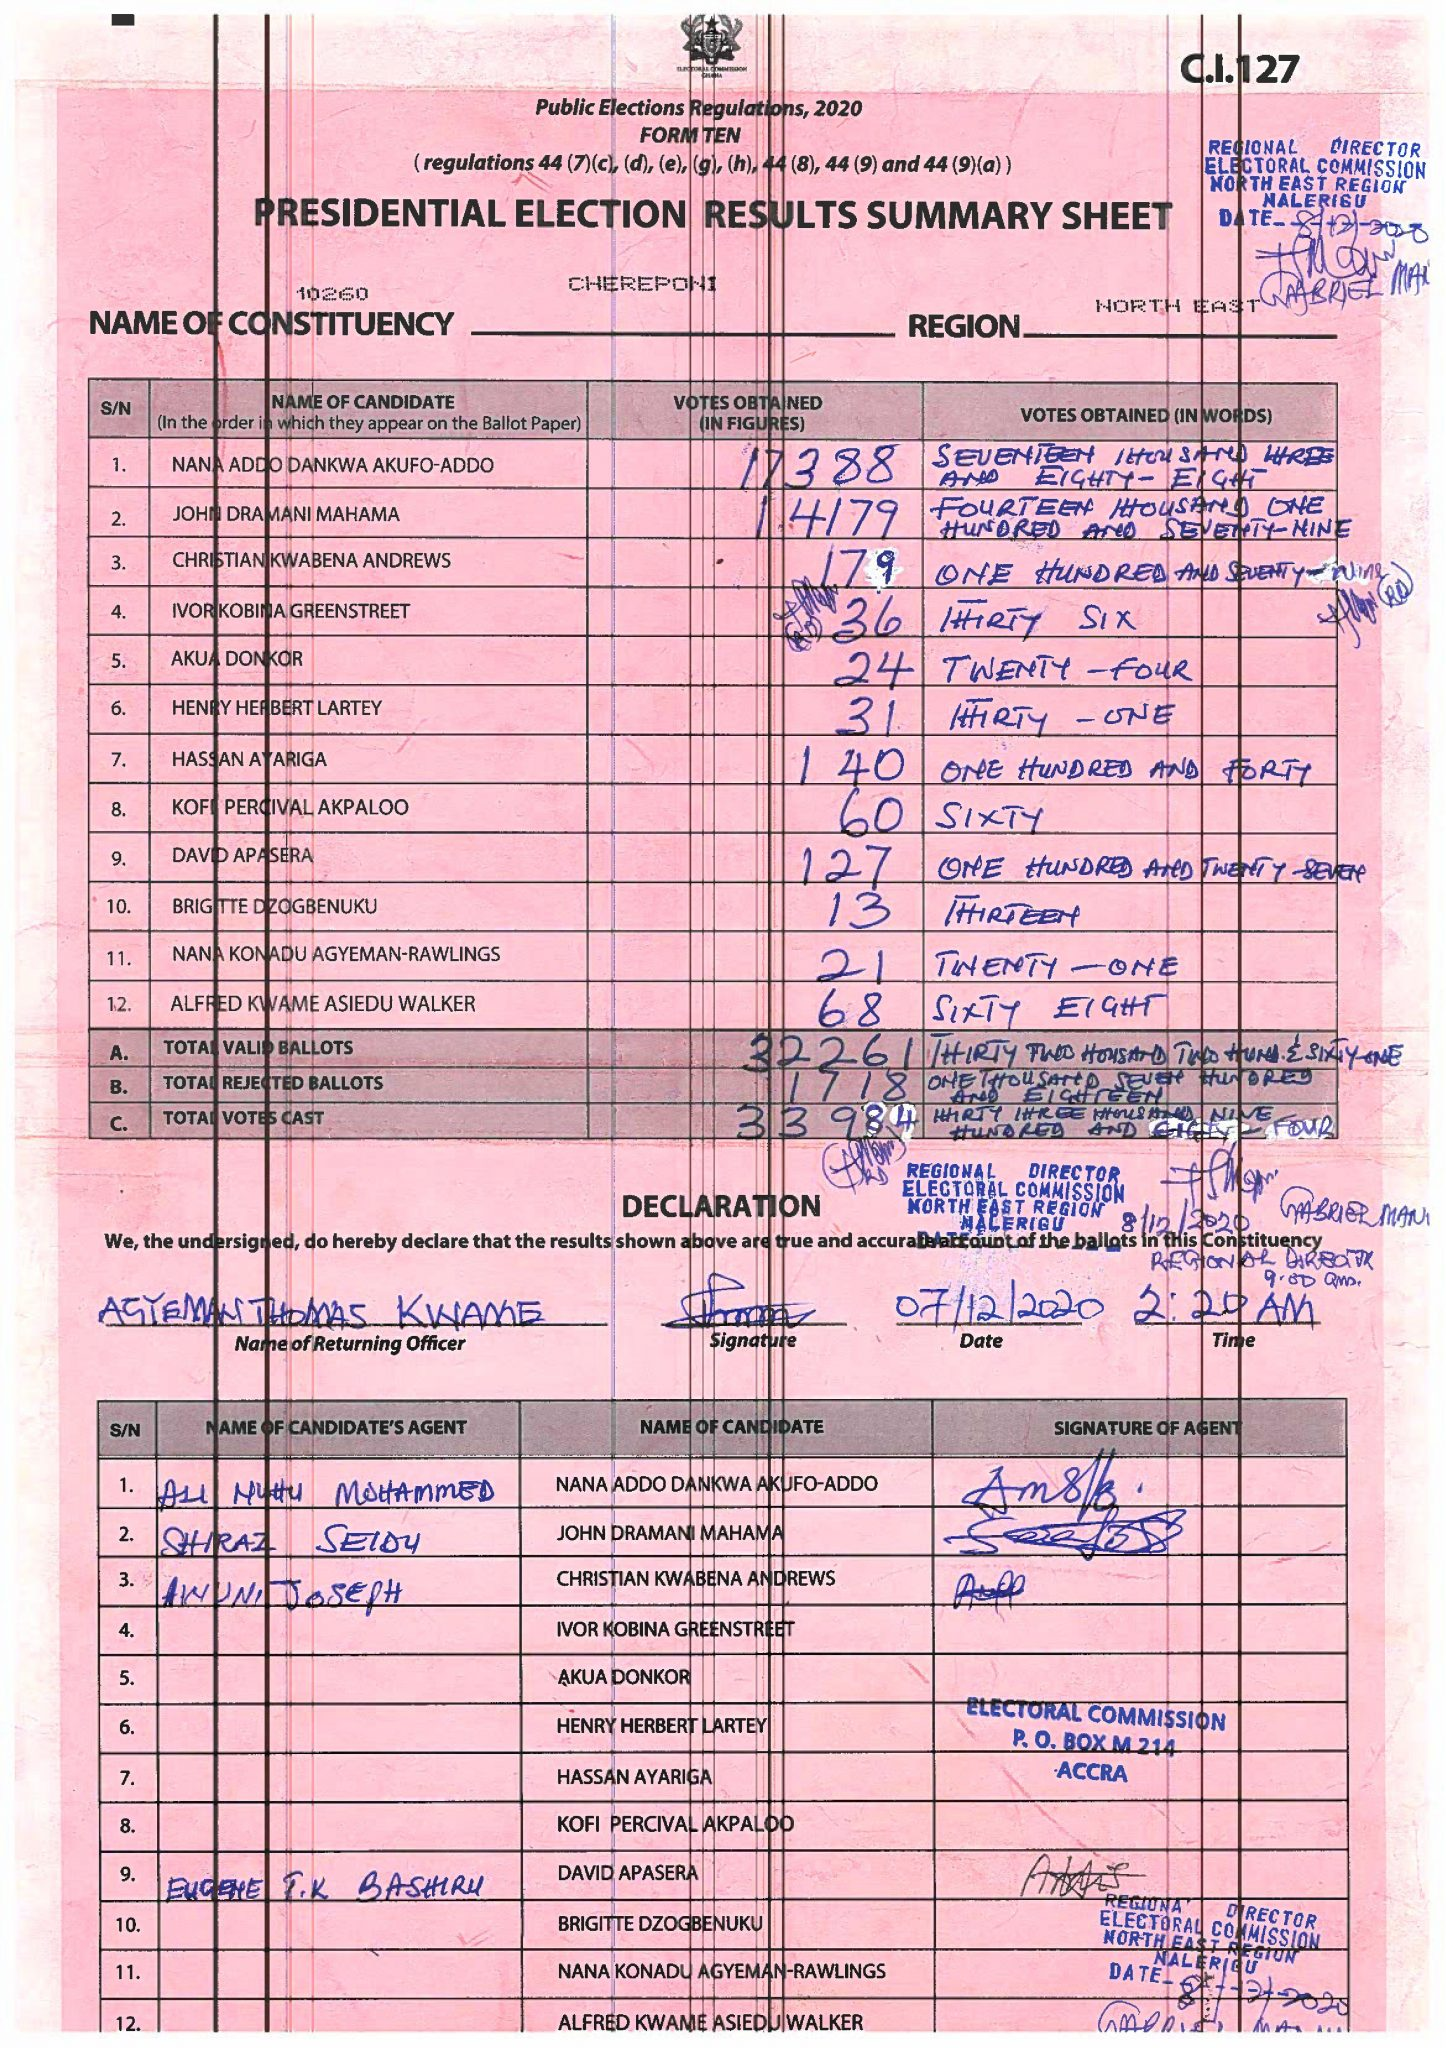 ELECTORAL COMMISSION
GHANA
C.I.127
Public Elections Regulations, 2020
FORM TEN
( regulations 44 (7)(c), (d), (e), (g), (h), 44 (8), 44 (9) and 44 (9)(a) )
REGIONAL DIRECTOR
ELECTORAL COMMISSION
NORTH EAST REGION
NALERIGU
DATE 8/12/2020
GABRIEL
PRESIDENTIAL ELECTION RESULTS SUMMARY SHEET
10260 CHEREPONI NORTH EAST
NAME OF CONSTITUENCY REGION
S/N NAME OF CANDIDATE (In the order in which they appear on the Ballot Paper) VOTES OBTAINED (IN FIGURES) VOTES OBTAINED (IN WORDS)
1. NANA ADDO DANKWA AKUFO-ADDO 17388 SEVENTEEN THOUSAND THREE
AND EIGHTY-EIGHT
2. JOHN DRAMANI MAHAMA 14179 FOURTEEN THOUSAND ONE
HUNDRED AND SEVENTY-NINE
3. CHRISTIAN KWABENA ANDREWS 179 ONE HUNDRED AND SEVENTY-NINE
4. IVOR KOBINA GREENSTREET 36 THIRTY SIX
5. AKUA DONKOR 24 TWENTY-FOUR
6. HENRY HERBERT LARTEY 31 THIRTY-ONE
7. HASSAN AYARIGA 140 ONE HUNDRED AND FORTY
8. KOFI PERCIVAL AKPALOO 60 SIXTY
9. DAVID APASERA 127 ONE HUNDRED AND TWENTY-SEVEN
10. BRIGITTE DZOGBENUKU 13 THIRTEEN
11. NANA KONADU AGYEMAN-RAWLINGS 21 TWENTY-ONE
12. ALFRED KWAME ASIEDU WALKER 68 SIXTY EIGHT
A. TOTAL VALID BALLOTS 32261 THIRTY TWO THOUSAND TWO HUND. & SIXTY-ONE
B. TOTAL REJECTED BALLOTS 1718 ONE THOUSAND SEVEN HUNDRED
AND EIGHTEEN
C. TOTAL VOTES CAST 33984 THIRTY THREE THOUSAND NINE
HUNDRED AND EIGHTY-FOUR
REGIONAL DIRECTOR
ELECTORAL COMMISSION
NORTH EAST REGION
NALERIGU
DATE
8/12/2020 GABRIEL MANI
DECLARATION
We, the undersigned, do hereby declare that the results shown above are true and accurate account of the ballots in this Constituency
REGIONAL DIRECTOR
9:00 am.
AGYEMAN THOMAS KWAME 07/12/2020 2:20 AM
Name of Returning Officer Signature Date Time
S/N NAME OF CANDIDATE'S AGENT NAME OF CANDIDATE SIGNATURE OF AGENT
1. ALI NUHU MOHAMMED NANA ADDO DANKWA AKUFO-ADDO
2. SHIRAZ SEIDU JOHN DRAMANI MAHAMA
3. AWUNI JOSEPH CHRISTIAN KWABENA ANDREWS
4. IVOR KOBINA GREENSTREET
5. AKUA DONKOR
6. HENRY HERBERT LARTEY
ELECTORAL COMMISSION
P. O. BOX M 214
ACCRA
7. HASSAN AYARIGA
8. KOFI PERCIVAL AKPALOO
9. EUGENE T.K BASHIRU DAVID APASERA
10. BRIGITTE DZOGBENUKU
REGIONAL DIRECTOR
ELECTORAL COMMISSION
NORTH EAST REGION
NALERIGU
DATE 8/12/2020
11. NANA KONADU AGYEMAN-RAWLINGS
12. ALFRED KWAME ASIEDU WALKER